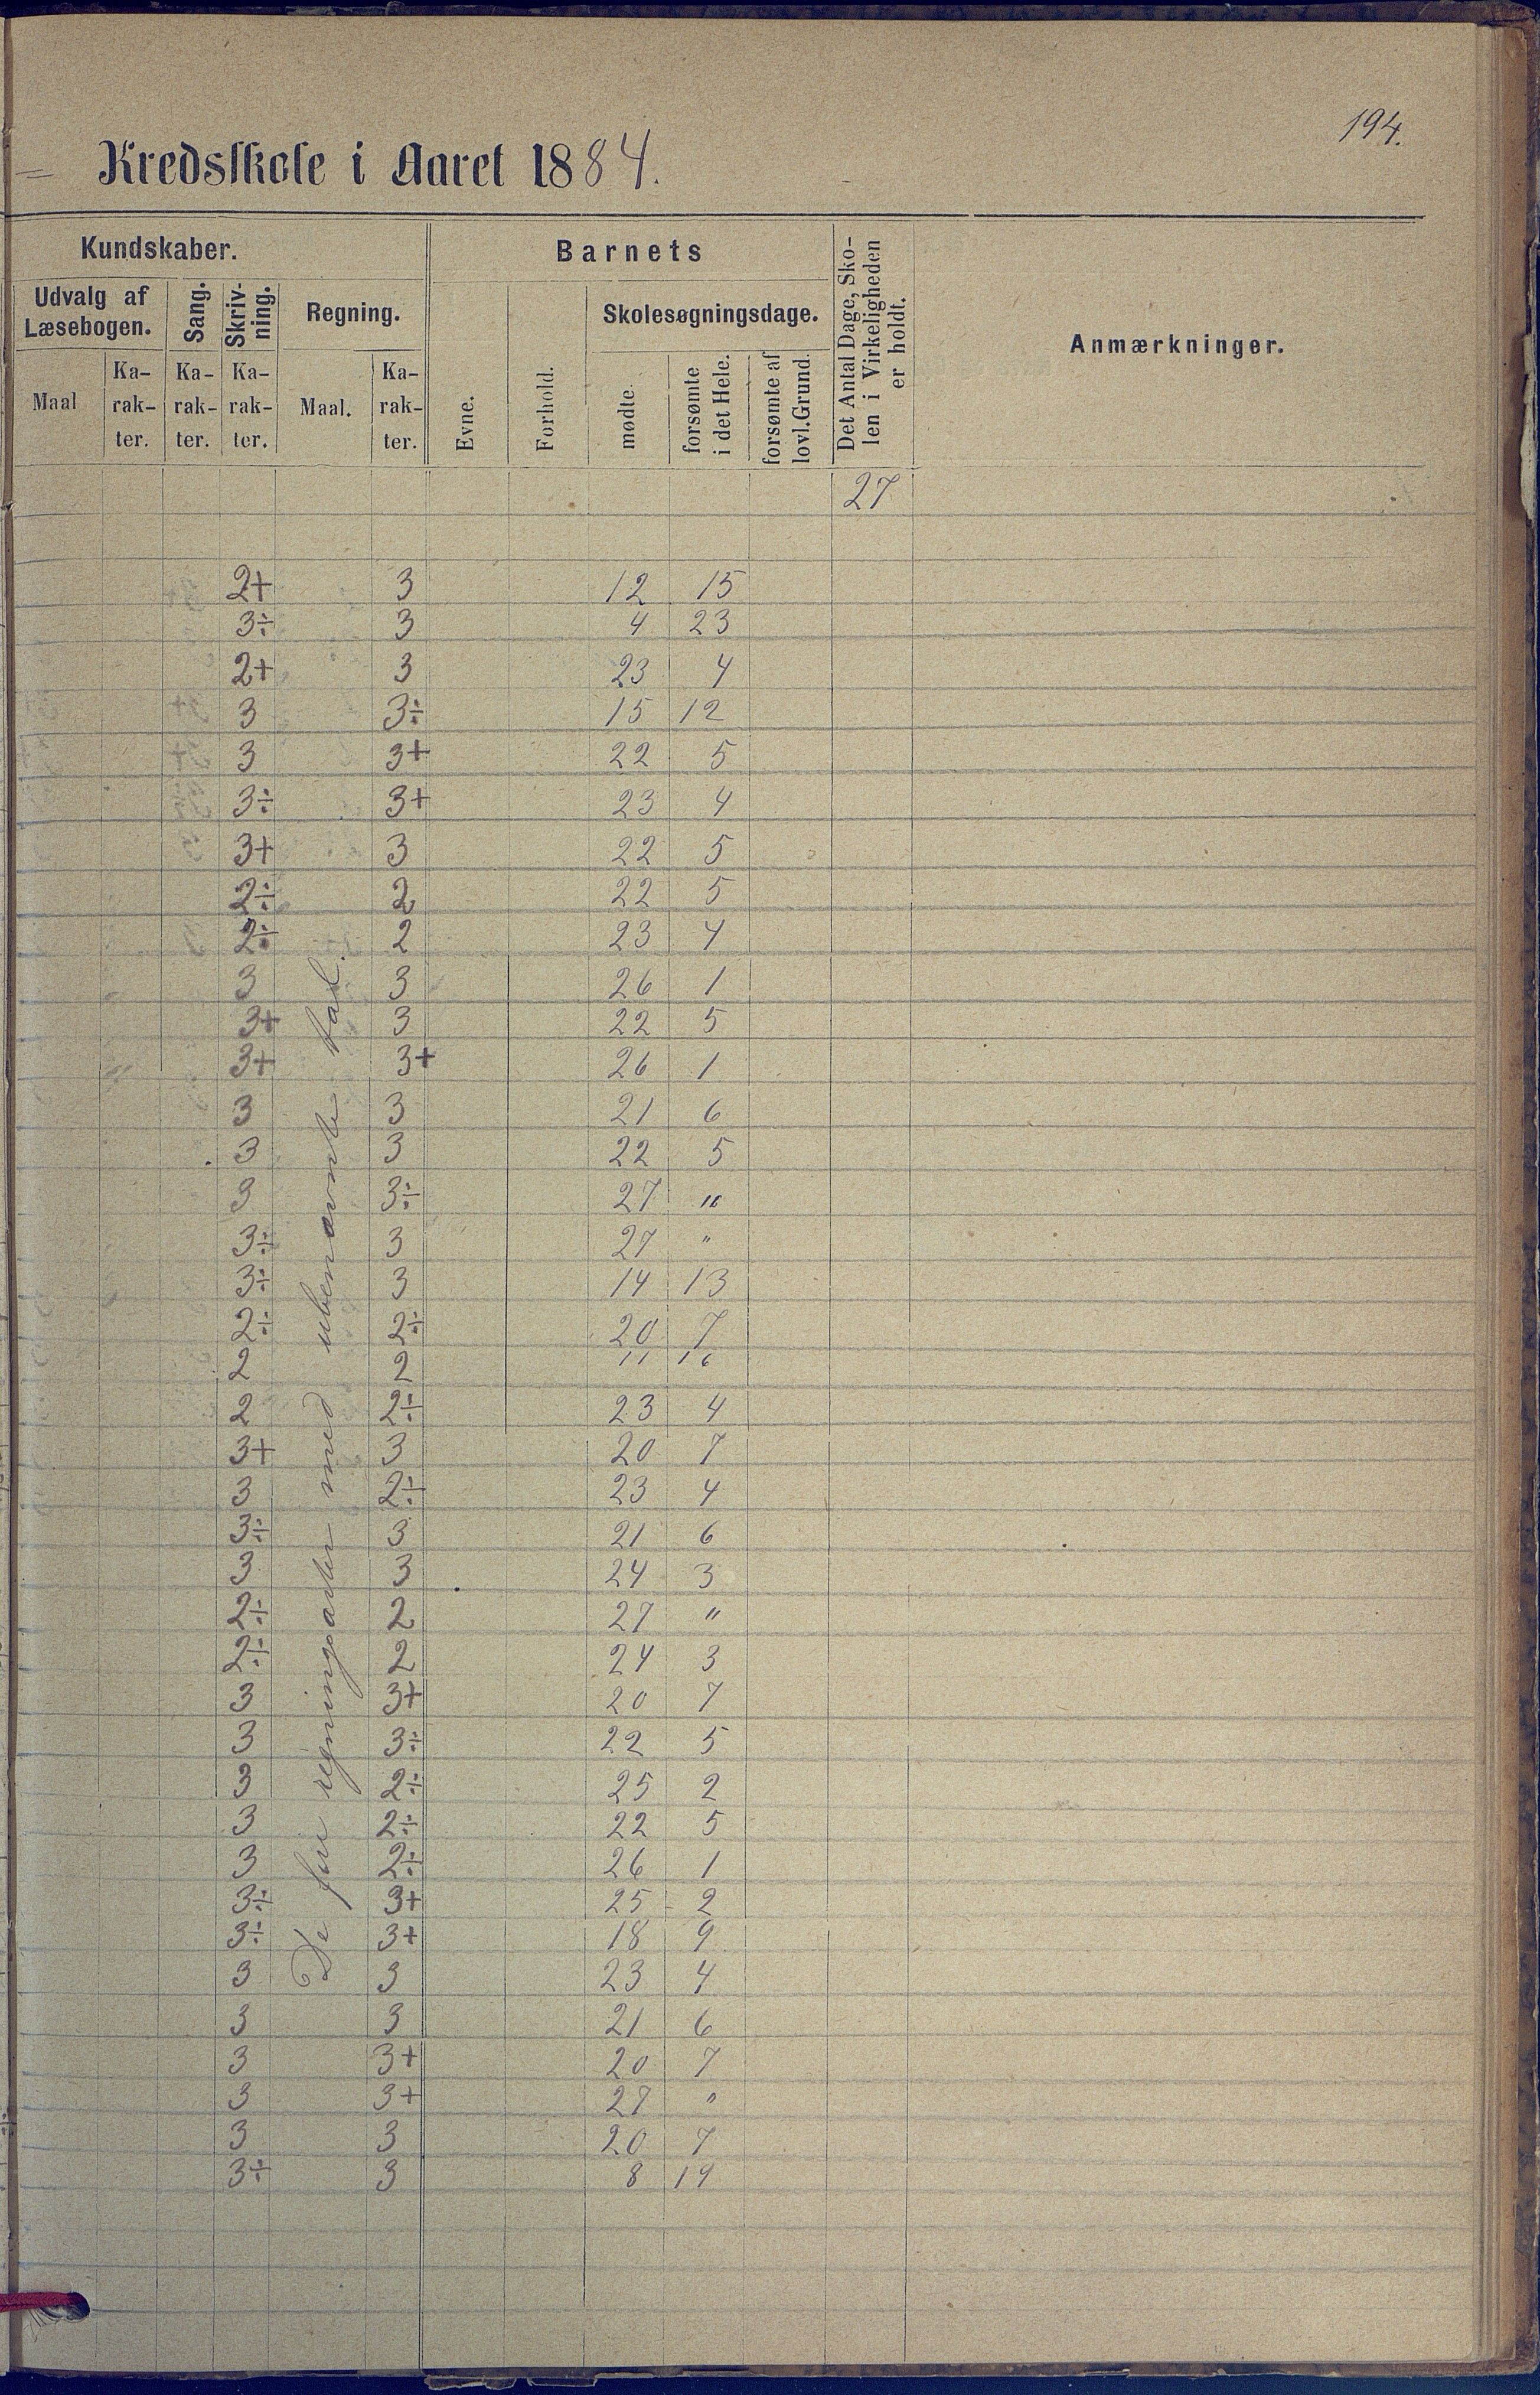 194.
Kredsskole i Aaret 1884.
Kundskaber.
Barnets
Det Antal Dage, Sko-
len i Virkeligheden
er holdt.
Anmærkninger.
Udvalg af
Læsebogen.
Sang.
Skriv-
ning.
Regning.
Skolesøgningsdage.
Maal
Ka-
rak-
ter.
Ka-
rak-
ter.
Ka-
rak-
ter.
Maal.
Ka-
rak-
ter.
Evne.
Forhold.
mødte
forsømte
i det Hele.
forsømte af
lovl. Grund.
27
De fire regningsarter med ubenævnte tal.
2+ 3 12 15
3÷ 3 4 23
2+ 3 23 4
3 3÷ 15 12
3 3+ 22 5
3÷ 3+ 23 4
3+ 3 22 5
2÷ 2 22 5
2÷ 2 23 4
3 3 26 1
3+ 3 22 5
3+ 3+ 26 1
3 3 21 6
3 3 22 5
3 3÷ 27 "
3÷ 3 27 "
3÷ 3 14 13
2÷ 2÷ 20 7
2 2 11 16
2 2÷ 23 4
3+ 3 20 7
3 2÷ 23 4
3÷ 3 21 6
3 3 24 3
2÷ 2 27 "
2÷ 2 24 3
3 3+ 20 7
3 3÷ 22 5
3 2÷ 25 2
3 2÷ 22 5
3 2÷ 26 1
3÷ 3+ 25 2
3÷ 3+ 18 9
3 3 23 4
3 3 21 6
3 3+ 20 7
3 3+ 27 "
3 3 20 7
3÷ 3 8 19